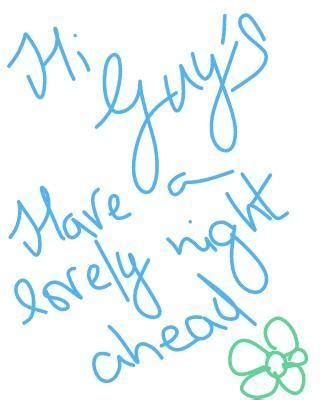 Hi Guy's
Have a
lovely night
ahead